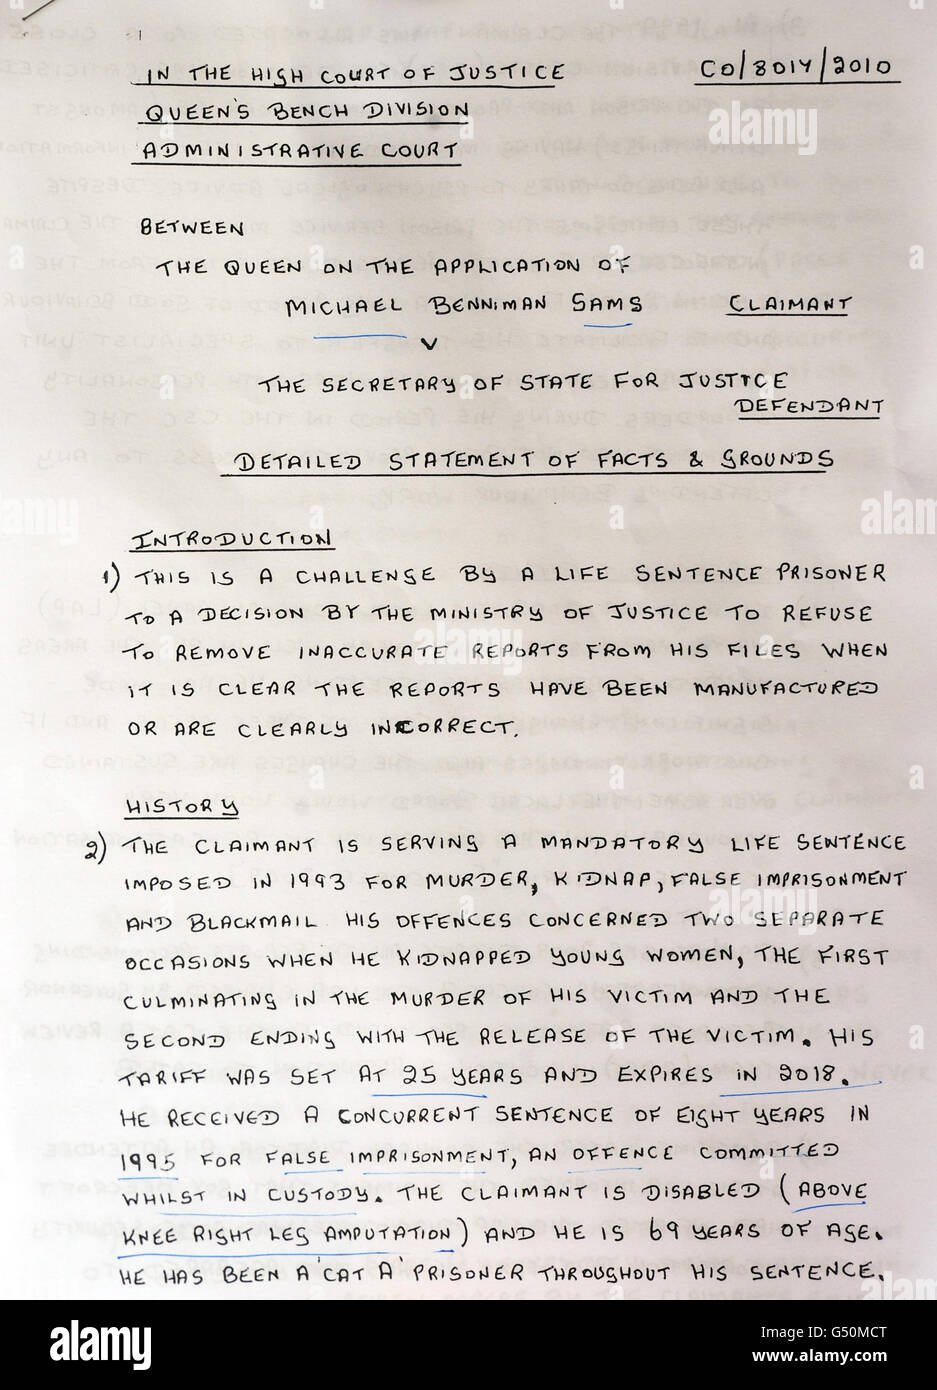 IN THE HIGH COURT OF JUSTICE CO/8014/2010
QUEEN'S BENCH DIVISION
ADMINISTRATIVE COURT
BETWEEN
THE QUEEN ON THE APPLICATION OF
MICHAEL BENNIMAN SAMS CLAIMANT
V
THE SECRETARY OF STATE FOR JUSTICE
DEFENDANT
DETAILED STATEMENT OF FACTS & GROUNDS
INTRODUCTION
1) THIS IS A CHALLENGE BY A LIFE SENTENCE PRISONER
TO A DECISION BY THE MINISTRY OF JUSTICE TO REFUSE
TO REMOVE INACCURATE REPORTS FROM HIS FILES WHEN
IT IS CLEAR THE REPORTS HAVE BEEN MANUFACTURED
OR ARE CLEARLY INCORRECT.
HISTORY
2) THE CLAIMANT IS SERVING A MANDATORY LIFE SENTENCE
IMPOSED IN 1993 FOR MURDER, KIDNAP, FALSE IMPRISONMENT
AND BLACKMAIL HIS OFFENCES CONCERNED TWO SEPARATE
OCCASIONS WHEN HE KIDNAPPED YOUNG WOMEN, THE FIRST
CULMINATING IN THE MURDER OF HIS VICTIM AND THE
SECOND ENDING WITH THE RELEASE OF THE VICTIM. HIS
TARIFF WAS SET AT 25 YEARS AND EXPIRES IN 2018.
HE RECEIVED A CONCURRENT SENTENCE OF EIGHT YEARS IN
1995 FOR FALSE IMPRISONMENT, AN OFFENCE COMMITTED
WHILST IN CUSTODY. THE CLAIMANT IS DISABLED (ABOVE
KNEE RIGHT LEG AMPUTATION) AND HE IS 69 YEARS OF AGE.
HE HAS BEEN A 'CAT A' PRISONER THROUGHOUT HIS SENTENCE.
alamy
alamy
alamy
alamy
alamy
alamy
alamy
alamy
alamy
alamy
Image ID: G50MCT
www.alamy.com